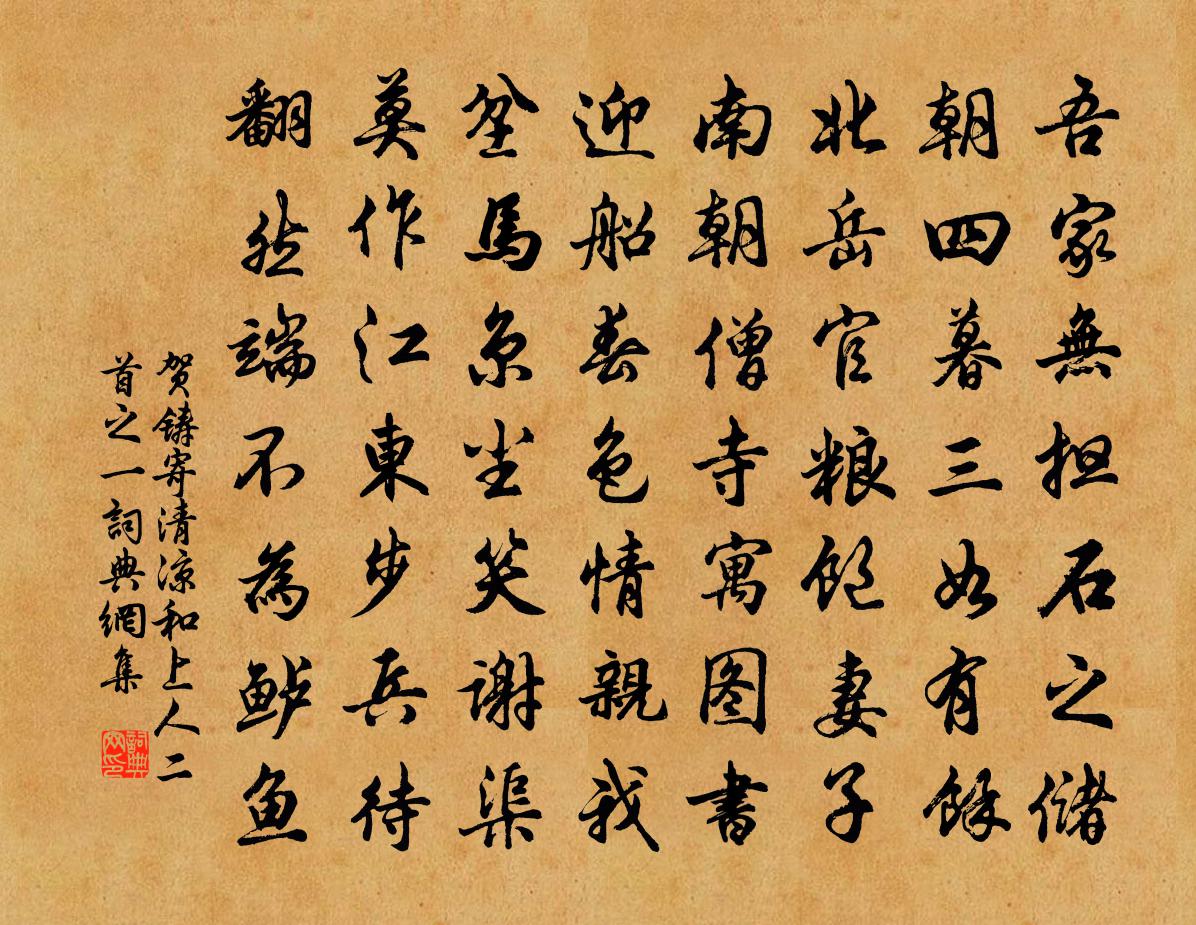 吾家無担石之儲
朝四暮三如有餘
北岳官粮飽妻子
南朝僧寺寓图書
迎船春色情親我
坌馬京尘笑謝渠
莫作江東步兵待
翻然端不為鲈鱼
贺鑄寄清凉和上人二
首之一詞典網集
詞典網印